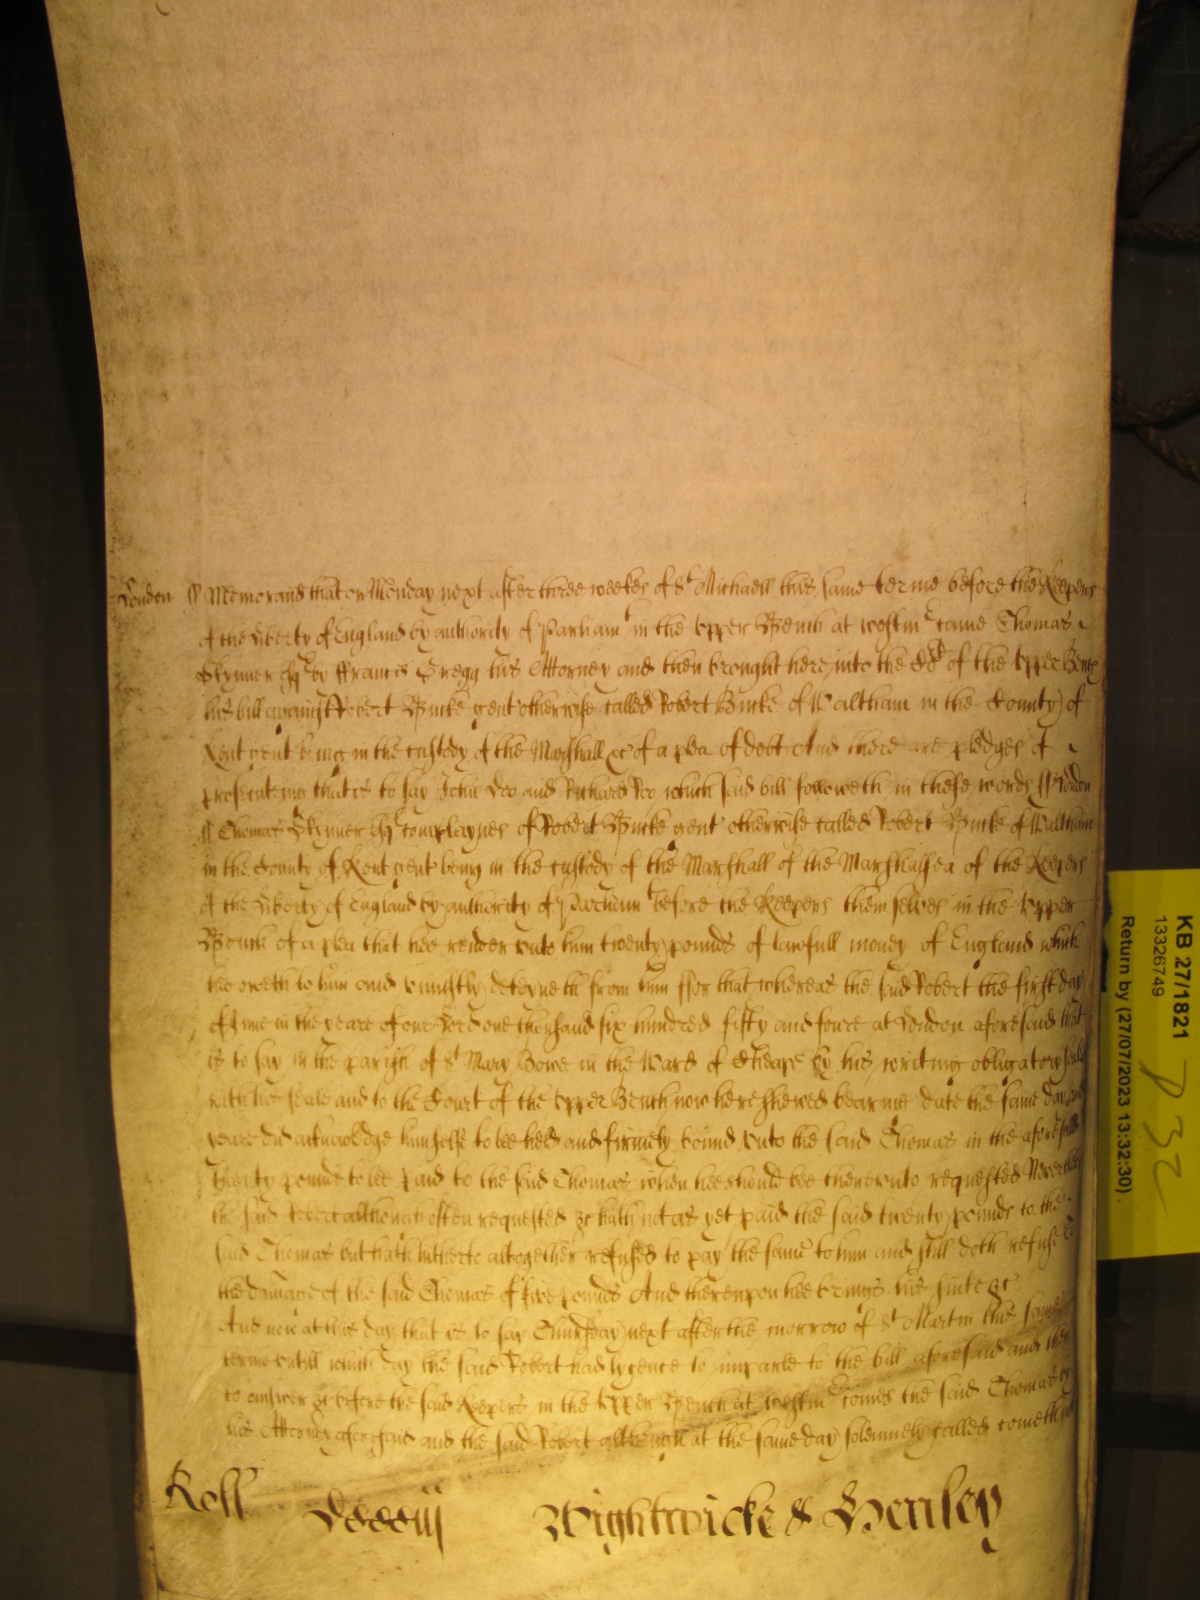 London ss Memorand that on Monday next after three weekes of St Michaell this same terme before the Keepers
of the Liberty of England by authority of Parliamt in the Upper Bench at Westmr came Thomas
Skynner Esqr by Francis Gregg his Attorney and then brought here into the Court of the Upper Bench
his bill against Robert Bucke gent otherwise called Robert Bucke of Waltham in the County of
Kent gent being in the custody of the Marshall &c of a plea of debt And there are pledges of
prosecuteing that is to say John Doo and Richard Roo which said bill followeth in these words ss London
ss Thomas Skynner Esqr complaynes of Robert Bucke gent otherwise called Robert Bucke of Waltham
in the County of Kent gent being in the custody of the Marshall of the Marshalsea of the Keepers
of the Liberty of England by authority of Parliamt before the Keepers themselves in the Upper
Bench of a plea that hee render unto him twenty pounds of lawfull money of England which
hee oweth to him and uniustly deteyneth from him ffor that whereas the said Robert the first day
of June in the yeare of our Lord one thousand six hundred fifty and foure at London aforesaid that
is to say in the parish of St Mary Bowe in the Ward of Cheape by his writing obligatory sealed
with his seale and to the Court of the Upper Bench now here shewed beareing date the same day and
yeare did acknowledge himselfe to bee held and firmely bound unto the said Thomas in the aforesaid
twenty pounds to bee paid to the said Thomas when hee should bee thereunto requested Neverthelesse
the said Robert although often requested &c hath not as yet paid the said twenty pounds to the
said Thomas but hath hitherto altogether refused to pay the same to him and still doth refuse to
the damage of the said Thomas of five pounds And thereupon hee brings his suite &c
And now at this day that is to say Thursday next after the morrow of St Martin this same
terme untill which day the said Robert had lycence to imparle to the bill aforesaid and then
to answer &c before the said Keepers in the Upper Bench at Westmr comes the said Thomas by
his Attorney aforesaid and the said Robert although at the same day solemnely called cometh not
Roll
Wightwicke & Henley
KB 27/1821
13326749
Return by (27/07/2023 13:32:30)
P 32